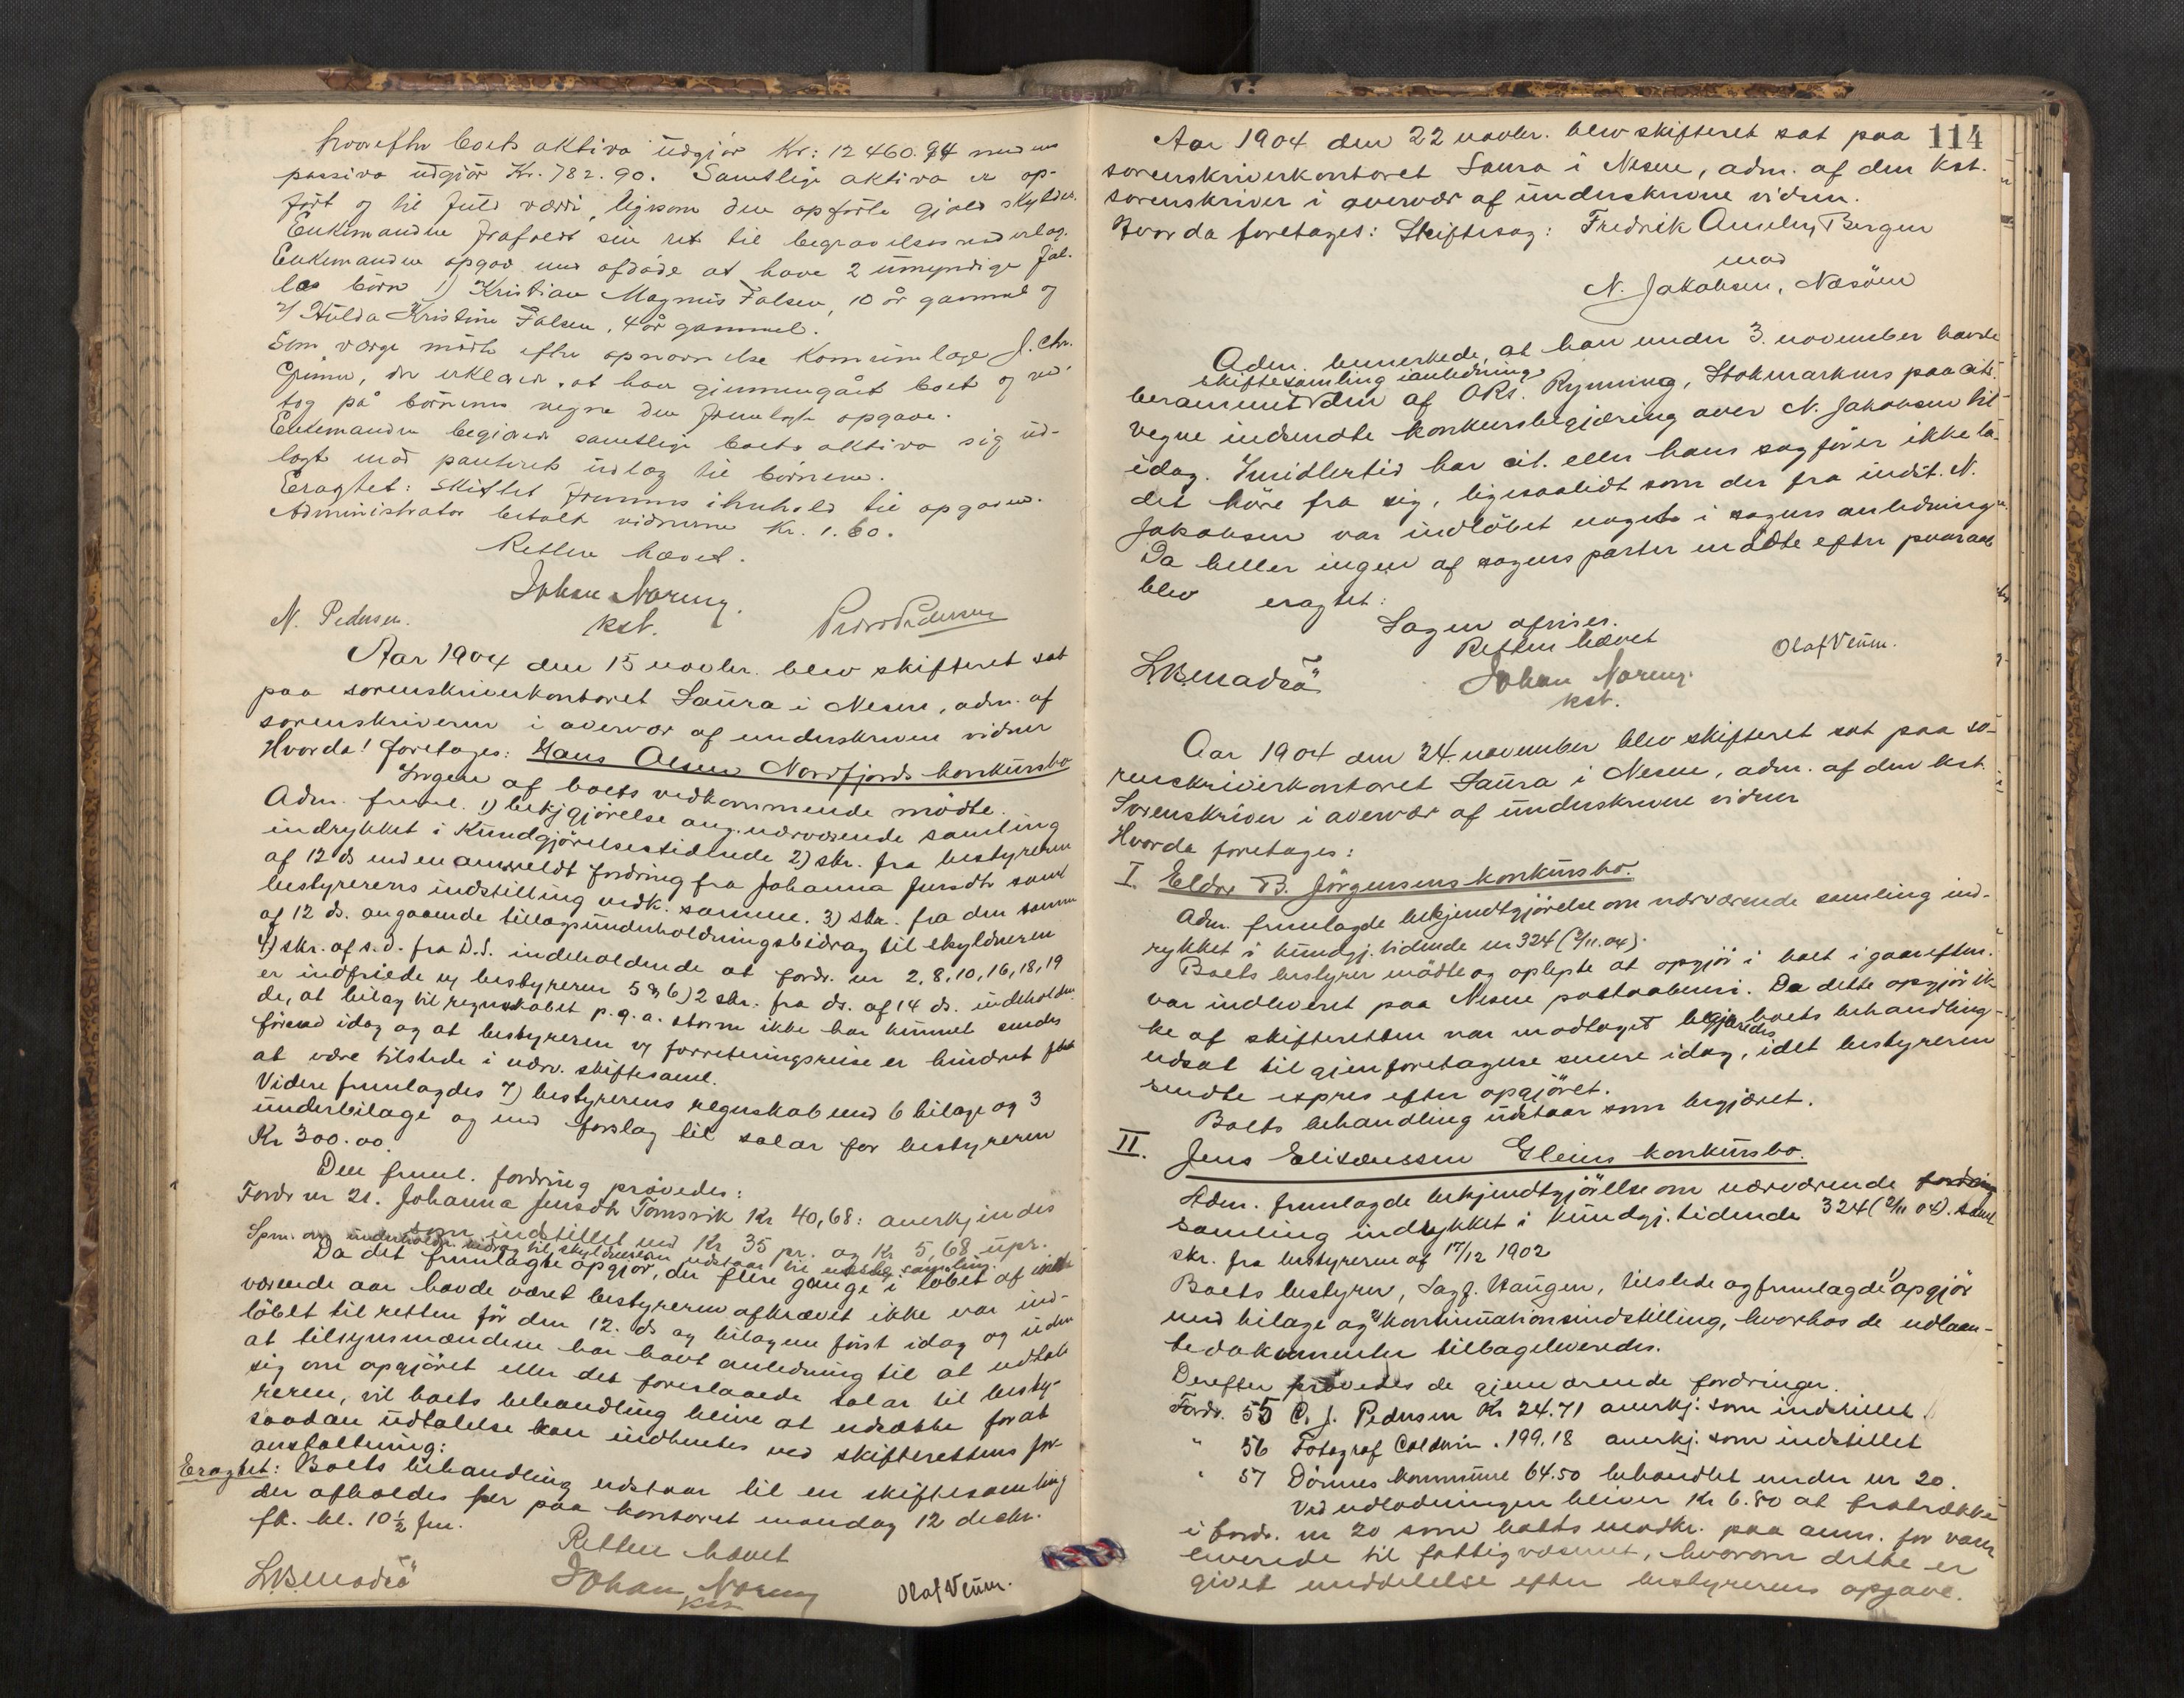 hvorefter boets aktiva udgjør Kr: 12460.94 medens
passiva udgjør Kr. 782.90. Samtlige aktiva er op-
ført og til fuld værdi, ligesom den opførte gjæld skyldes.
Enkemanden frafaldt sin ret til begravelsesvederlag.
Enkemanden opgav med afdøde at have 2 umyndige fæl-
les børn 1) Kristian Magnus Falsen, 10 år gammel og
2) Hulda Kristine Falsen, 4 år gammel.
Som værge mødte efter opnævnelse Kommunelæge J. Chr.
der erklæred, at han gjennemgået boet og ved-
tog på børnenes vegne den fremlagte opgave.
Enkemanden begjæred samtlige boets aktiva sig ud-
lagt mod panterets udlæg til børnene.
Eragtet: Skiftet fremmes i henhold til opgaven.
Administrator betalt vidnerne Kr. 1.60.
Retten hævet.
Johan Noreng.
kst.
N. Pedersen.
Peder Pedersen
Aar 1904 den 15 novbr. blev skifteret sat
paa sorenskriverkontoret Saura i Nesne, adm. af
sorenskriveren i overvær af underskrevne vidner
Hvorda! foretages: Hans Olsen Nordfjords konkursbo
Ingen af boets vedkommende mødte.
Adm. freml. 1) bekjgjørelse ang. nærværende samling
indrykket i Kundgjørelsestidende 2) skr. fra bestyreren
af 12 ds med en anmeldt fordring fra Johanna Jensdtr samt
bestyrerens indstilling vedk. samme. 3) skr. fra den samme
af 12 ds. angaaende tillægsunderholdningsbidrag til skyldneren
4) skr. af s.d. fra D.S. indeholdende at fordr. nr 2, 8, 10, 16, 18, 19
er indfriede og bestyreren 5 & 6) 2 skr. fra ds. af 14 ds. indeholden-
de, at bilag til regnskabet p.g.a. storm ikke har kunnet sendes
førend idag og at bestyreren vg forretningsreise er hindret fra
at være tilstede i nærv. skiftesaml.
Videre fremlagdes 7) bestyrerens regnskab med 6 bilage og 3
underbilage og med forslag til salær for bestyreren
Kr 300.00.
Den freml. fordring prøvedes:
Fordr nr 21. Johanna Jensdtr Tomsvik Kr 40,68: anerkjendes
som indstillet med Kr 35 pr. og Kr 5,68 upr.
Spm. om underholdn. bidrag til skyldneren udstaar til næste samling.
Da det fremlagte opgjør, der flere gange i løbet af indev-
værende aar havde været bestyreren afkrævet ikke var ind-
løbet til retten før den 12. ds og bilagene først idag og uden
at tilsynsmændene har havt anledning til at udtale
sig om opgjøret eller det foreslaaede salær til besty-
reren, vil boets behandling blive at udsætte forat
saadan udtalelse kan indhentes ved skifterettens for-
anstaltning:
Eragtet: Boets behandling udstaar til en skiftesamling
der afholdes her paa kontoret mandag 12 decbr.
fk. kl. 10 ½ fm.
Retten hævet
L.B. Madsø
Johan Noreng
kst
Olaf Venn.
114
Aar 1904 den 22 novbr. blev skifteret sat paa
sorenskriverkontoret Saura i Nesne, adm. af den kst.
sorenskriver i overvær af underskrevne vidner.
Hvorda foretages: Skiftesag: Fredrik Ameln, Bergen
mod
N. Jakobsen, Næsøen
Adm. bemerkede, at han under 3. november havde
skiftesamling i anledning
berammet den af ORs. Rynning, Stokmarknes paa cit.
vegne indsendte konkursbegjæring over N. Jakobsen til
idag. Imidlertid har cit. eller hans sagfører ikke la-
det høre fra sig, ligesaalidt som der fra indst. N.
Jakobsen var indløbet noget i sagens anledning.
Da heller ingen af sagens parter mødte efter paaraab
blev eragtet:
Sagen afvises.
Retten hævet
L.B. Madsø
Johan Noreng.
kst.
Olaf Venn.
Aar 1904 den 24. november blev skifteret sat paa so-
renskriverkontoret Saura i Nesne, adm. af den kst.
Sorenskriver i overvær af underskrevne vidner
Hvorda foretages:
I. Eldor B. Jørgensens konkursbo.
Adm. fremlagde bekjendtgjørelse om nærværende samling ind-
rykket i kundgj. tidende nr 324 (9/11.04).
Boets bestyrer mødte og oplyste at opgjør i boet igaar efterm.
var indleveret paa Nesne postaabneri. Da dette opgjør ik-
ke af skifteretten var modtaget begjæredes boets behandling
udsat til gjenforetagelse senere idag, idet bestyreren
sendte expres efter opgjøret.
Boets behandling udstaar som begjæret.
II. Jens Elisæussen Gleins konkursbo.
Adm. fremlagde bekjendtgjørelse om nærværende fordring
samling indrykket i kundgj. tidende 324 (9/11 04). samt
skr. fra bestyreren af 17/12 1902
Boets bestyrer, Sagf. Haugen, tilstede og fremlagde 1) opgjør
med bilage og 2) kontinuationsindstilling, hvorhos de udlaan-
te dokumenter tilbageleveredes.
Derefter prøvedes de gjenværende fordringer.
Fordr. 55 O. J. Pedersen Kr 24.71 anerkj: som indstillet.
" 56 Fotograf Caldwin . 199.18 anerkj. som indstillet
" 57 Dønnes kommune 64.50 behandlet under nr 20.
Ved udlodningen bliver Kr 6.80 at fratrække
i fordr. nr 20 som boets modkr. paa anm. for vare
leverede til fattigvæsenet, hvorom dette er
givet meddelelse efter bestyrerens opgave.